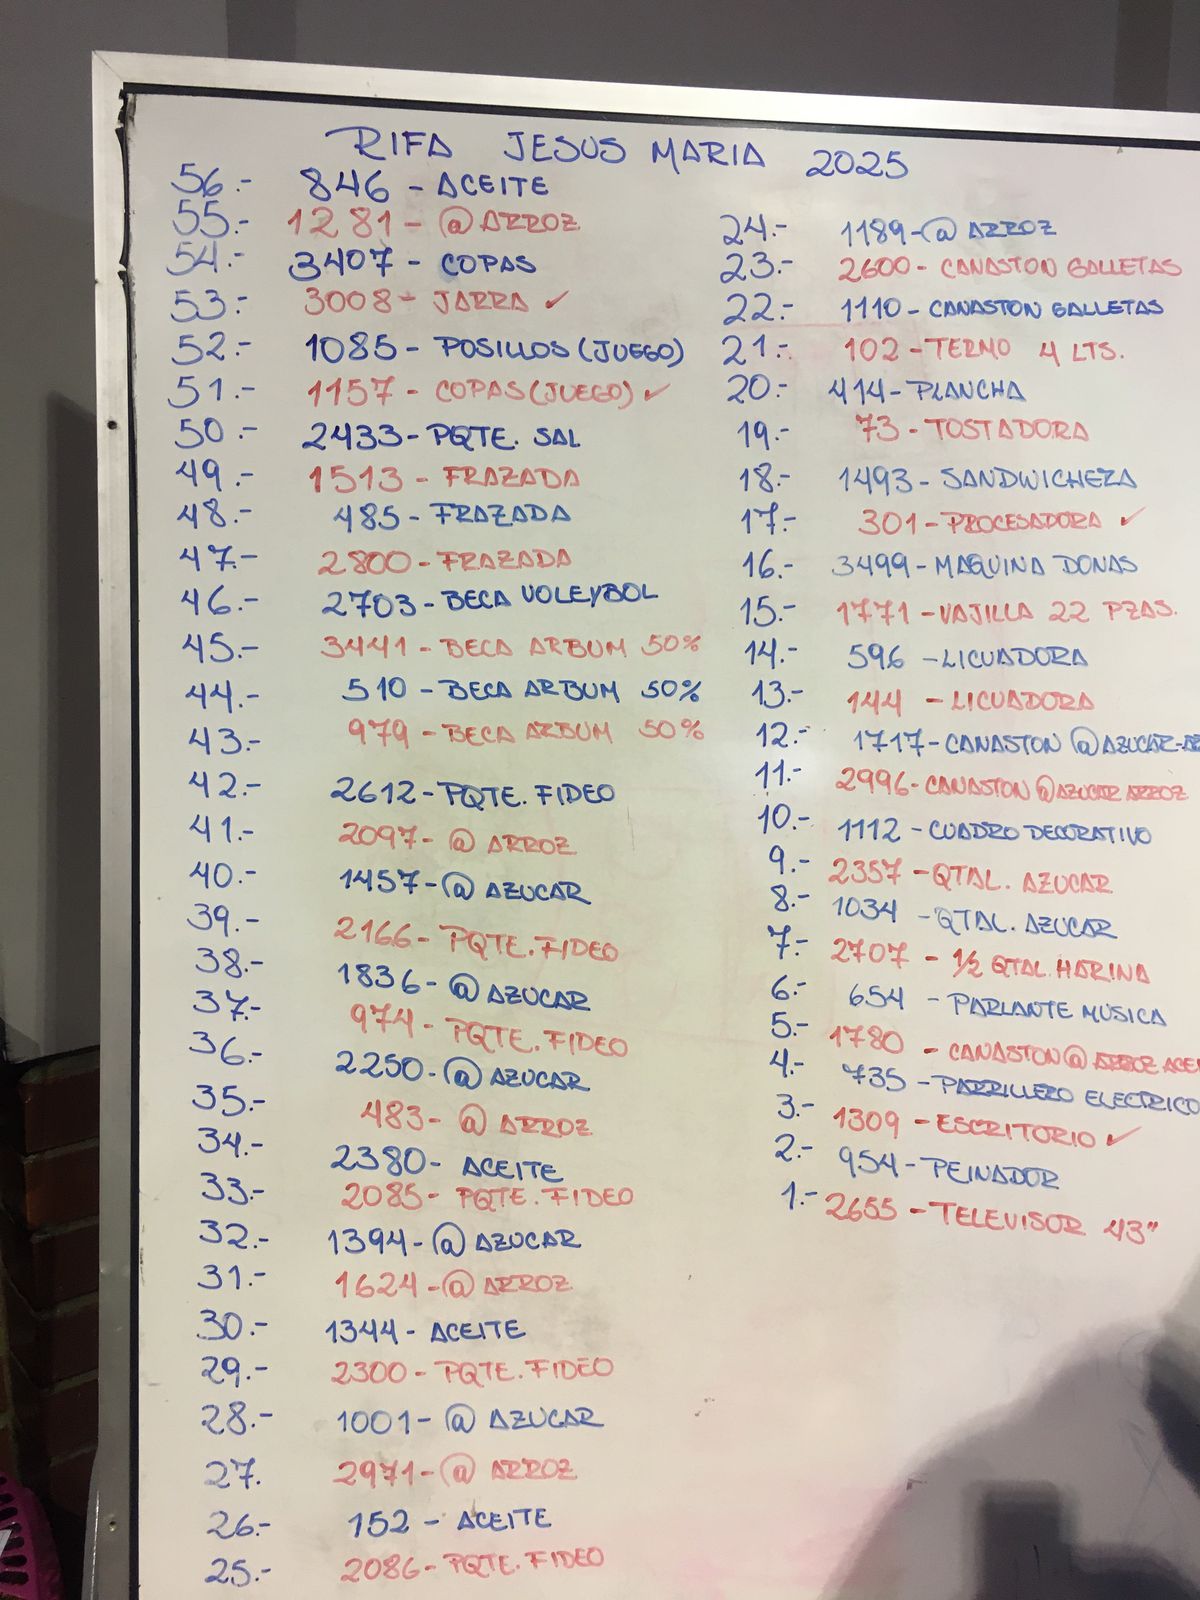 RIFA JESUS MARIA 2025
56.- 846 - ACEITE
55.- 1281 - @ ARROZ
54.- 3407 - COPAS
53.- 3008 - JARRA ✓
52.- 1085 - POSILLOS (JUEGO)
51.- 1157 - COPAS (JUEGO) ✓
50.- 2433 - PQTE. SAL
49.- 1513 - FRAZADA
48.- 485 - FRAZADA
47.- 2800 - FRAZADA
46.- 2703 - BECA VOLEYBOL
45.- 3441 - BECA ARBUM 50%
44.- 510 - BECA ARBUM 50%
43.- 979 - BECA ARBUM 50%
42.- 2612 - PQTE. FIDEO
41.- 2097 - @ ARROZ
40.- 1457 - @ AZUCAR
39.- 2166 - PQTE. FIDEO
38.- 1836 - @ AZUCAR
37.- 974 - PQTE. FIDEO
36.- 2250 - @ AZUCAR
35.- 483 - @ ARROZ
34.- 2380 - ACEITE
33.- 2085 - PQTE. FIDEO
32.- 1394 - @ AZUCAR
31.- 1624 - @ ARROZ
30.- 1344 - ACEITE
29.- 2300 - PQTE. FIDEO
28.- 1001 - @ AZUCAR
27. 2971 - @ ARROZ
26.- 152 - ACEITE
25.- 2086 - PQTE. FIDEO
24.- 1189 - @ ARROZ
23.- 2600 - CANASTON GALLETAS
22.- 1110 - CANASTON GALLETAS
21.- 102 - TERMO 4 LTS.
20.- 414 - PLANCHA
19.- 73 - TOSTADORA
18.- 1493 - SANDWICHERA
17.- 301 - PROCESADORA ✓
16.- 3499 - MAQUINA DONAS
15.- 1771 - VAJILLA 22 PZAS.
14.- 596 - LICUADORA
13.- 144 - LICUADORA
12.- 1717 - CANASTON @ AZUCAR-
11.- 2996 - CANASTON @ AZUCAR ARROZ
10.- 1112 - CUADRO DECORATIVO
9.- 2357 - QTAL. AZUCAR
8.- 1034 - QTAL. AZUCAR
7.- 2707 - 1/2 QTAL. HARINA
6.- 654 - PARLANTE MUSICA
5.- 1780 - CANASTON @ ARROZ
4.- 735 - PARRILLERO ELECTRICO
3.- 1309 - ESCRITORIO ✓
2.- 954 - PEINADOR
1.- 2655 - TELEVISOR 43"